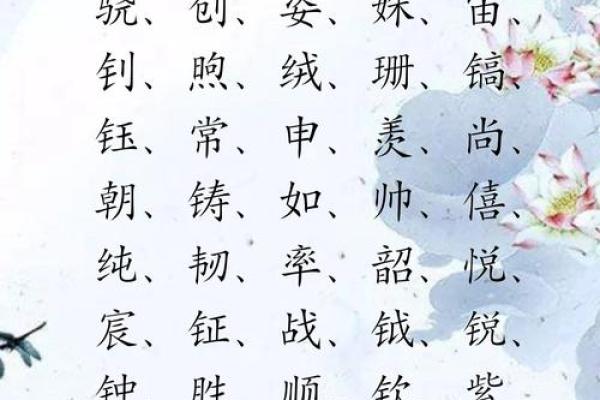 骁、创、姿、姝、宙、
钊、煦、绒、珊、镐、
钰、常、申、羡、尚、
朝、铸、如、帅、僖、
纯、韧、率、韶、悦、
宸、钲、战、钺、锐、
钟、胜、顺、钦、紫、